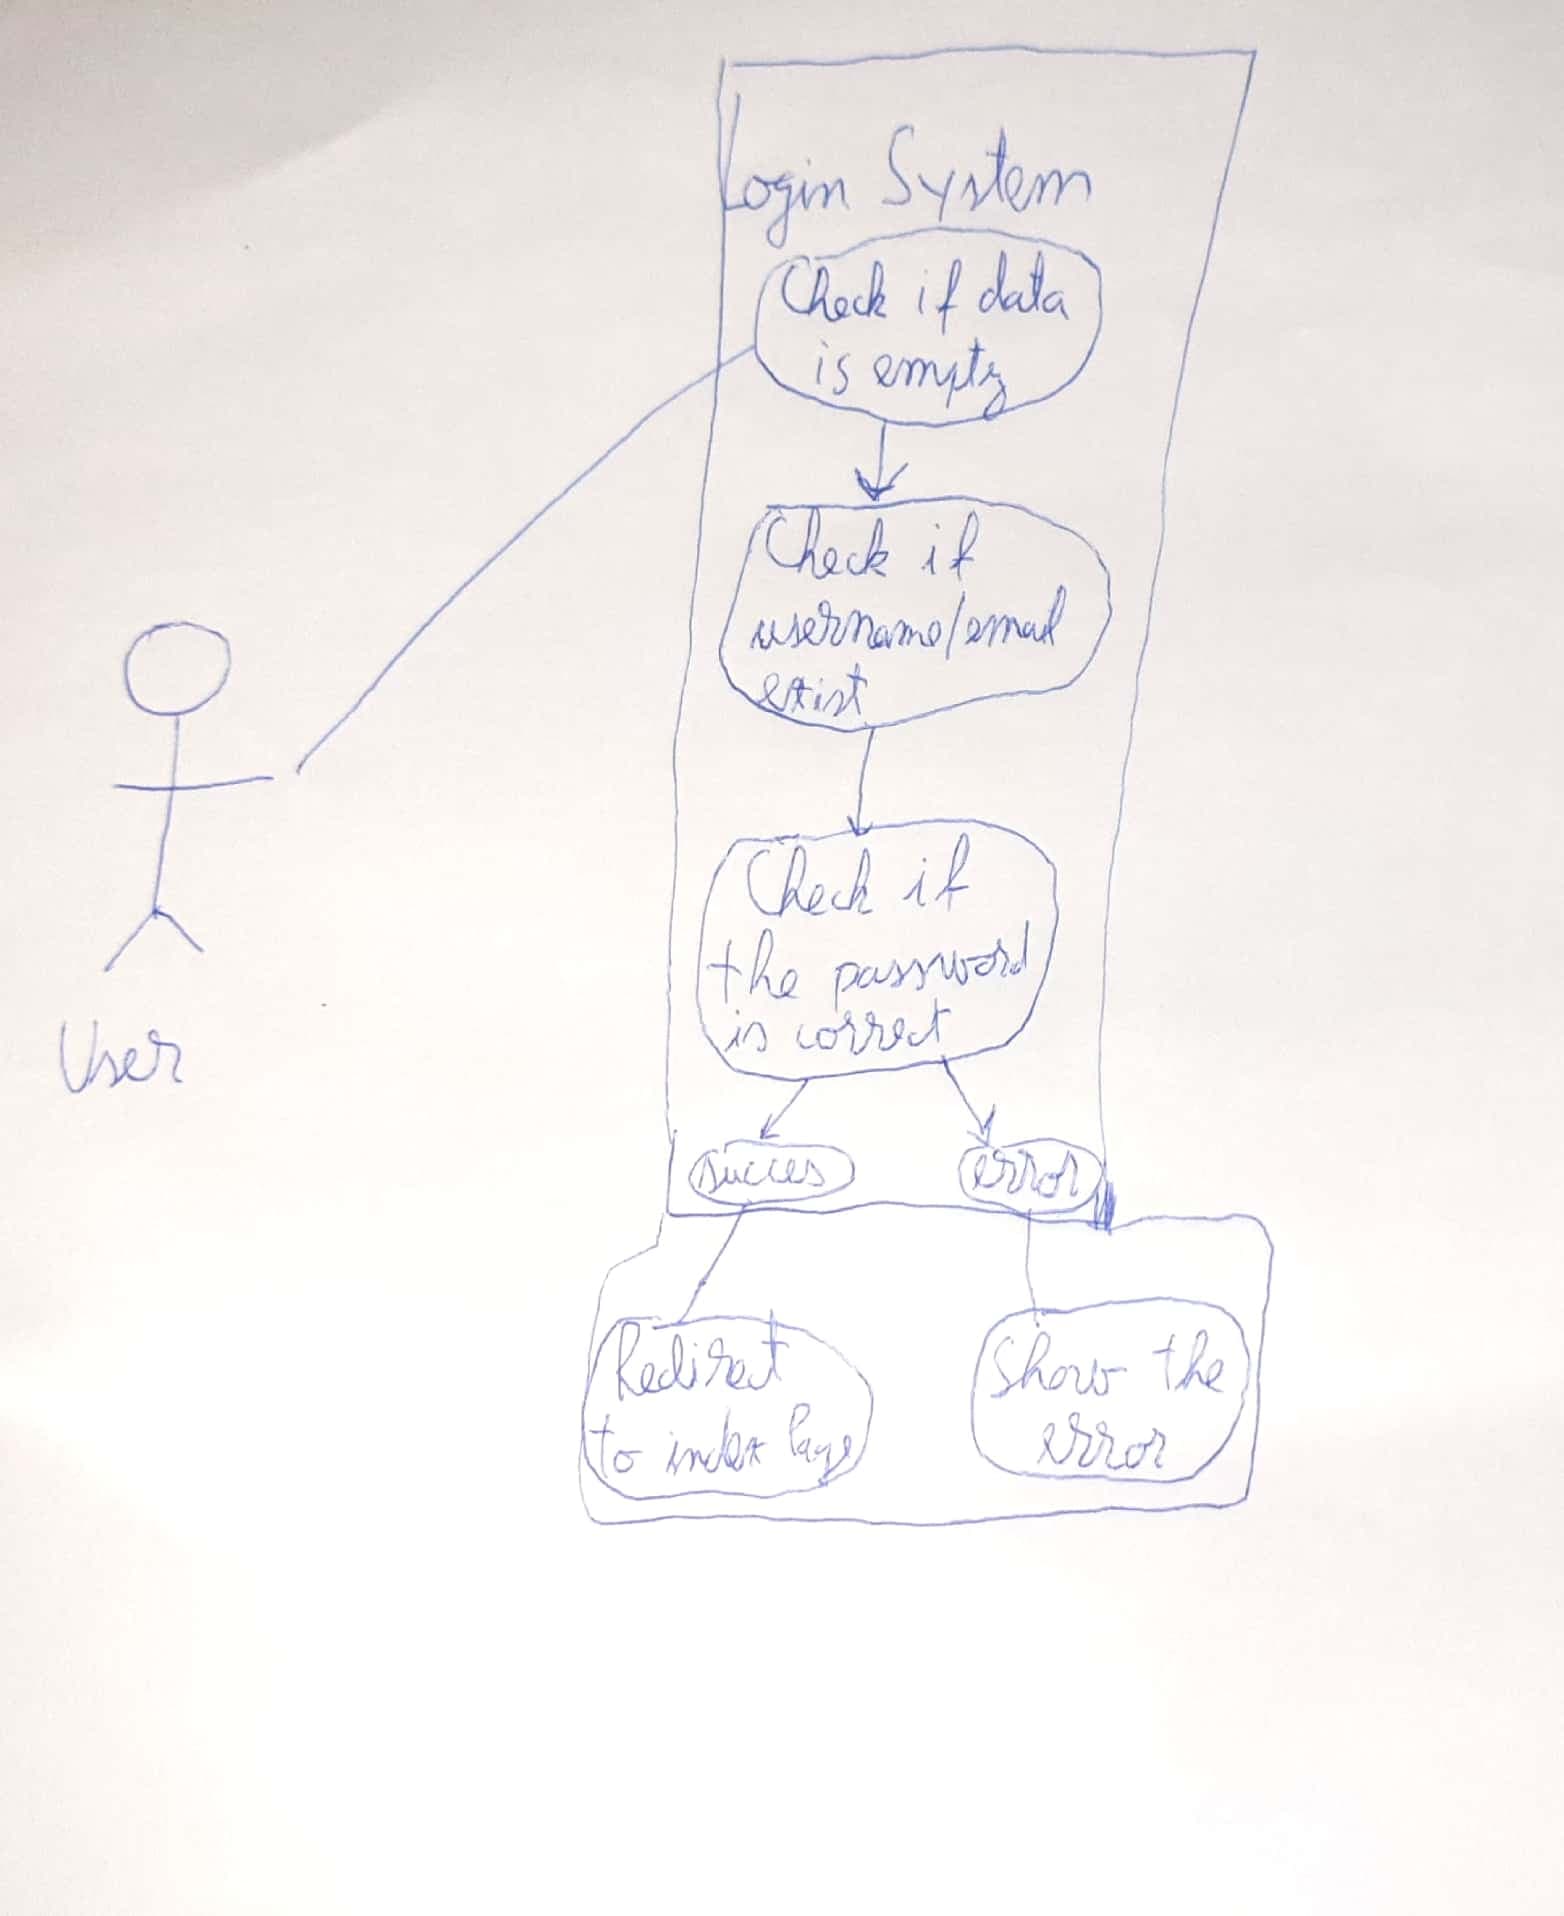 Login System
Check if data
is empty
Check if
username/email
exist
Check if
the password
is correct
User
succes
error
Redirect
to index Page
Show the
error